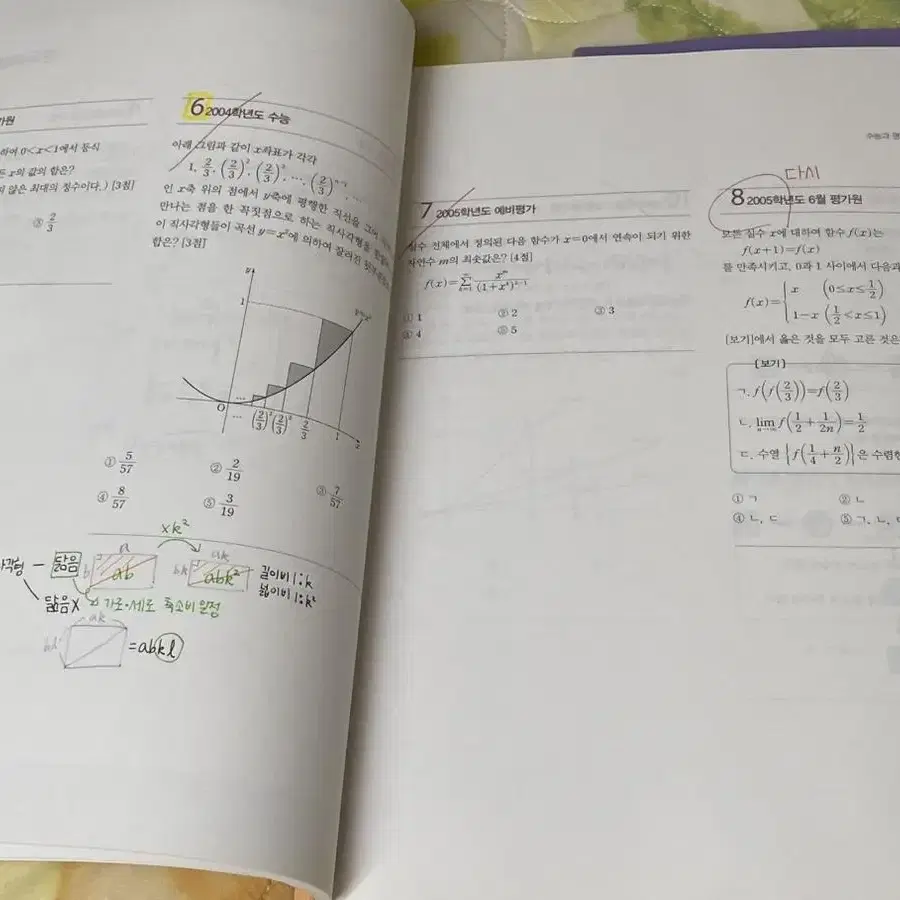 가원
하여 0<x<1에서 등식
든 x의 값의 합은?
지 않은 최대의 정수이다.) [3점]
③ 2/3
6 2004학년도 수능
아래 그림과 같이 x좌표가 각각
1, 2/3, (2/3)², (2/3)³, …, (2/3)ⁿ⁻¹, …
인 x축 위의 점에서 y축에 평행한 직선을 그어
만나는 점을 한 꼭짓점으로 하는 직사각형을
이 직사각형들이 곡선 y=x²에 의하여 잘려진 윗부분
합은? [3점]
y
1
y=x²
O
… (2/3)³ (2/3)² 2/3 1 x
① 5/57 ② 2/19 ③ 7/57
④ 8/57 ⑤ 3/19
×k²
사각형 — 닮음 a b ab ak bk abk² 길이비 1:k
넓이비 1:k²
닮음X 가로·세로 축소비 일정
ak
bl =abkl
수능과 평
7 2005학년도 예비평가
실수 전체에서 정의된 다음 함수가 x=0에서 연속이 되기 위한
자연수 m의 최솟값은? [4점]
① 1 ② 2 ③ 3
④ 4 ⑤ 5
다시
8 2005학년도 6월 평가원
모든 실수 x에 대하여 함수 f(x)는
f(x+1)=f(x)
를 만족시키고, 0과 1 사이에서 다음과
f(x)={ x (0≤x≤1/2)
1-x (1/2<x≤1)
[보기]에서 옳은 것을 모두 고른 것은
[보기]
ㄱ. f(f(2/3))=f(2/3)
ㄴ. lim n→∞ f(1/2+1/2n)=1/2
ㄷ. 수열 {f(1/4+n/2)}은 수렴한
① ㄱ ② ㄴ
④ ㄴ, ㄷ ⑤ ㄱ, ㄴ,